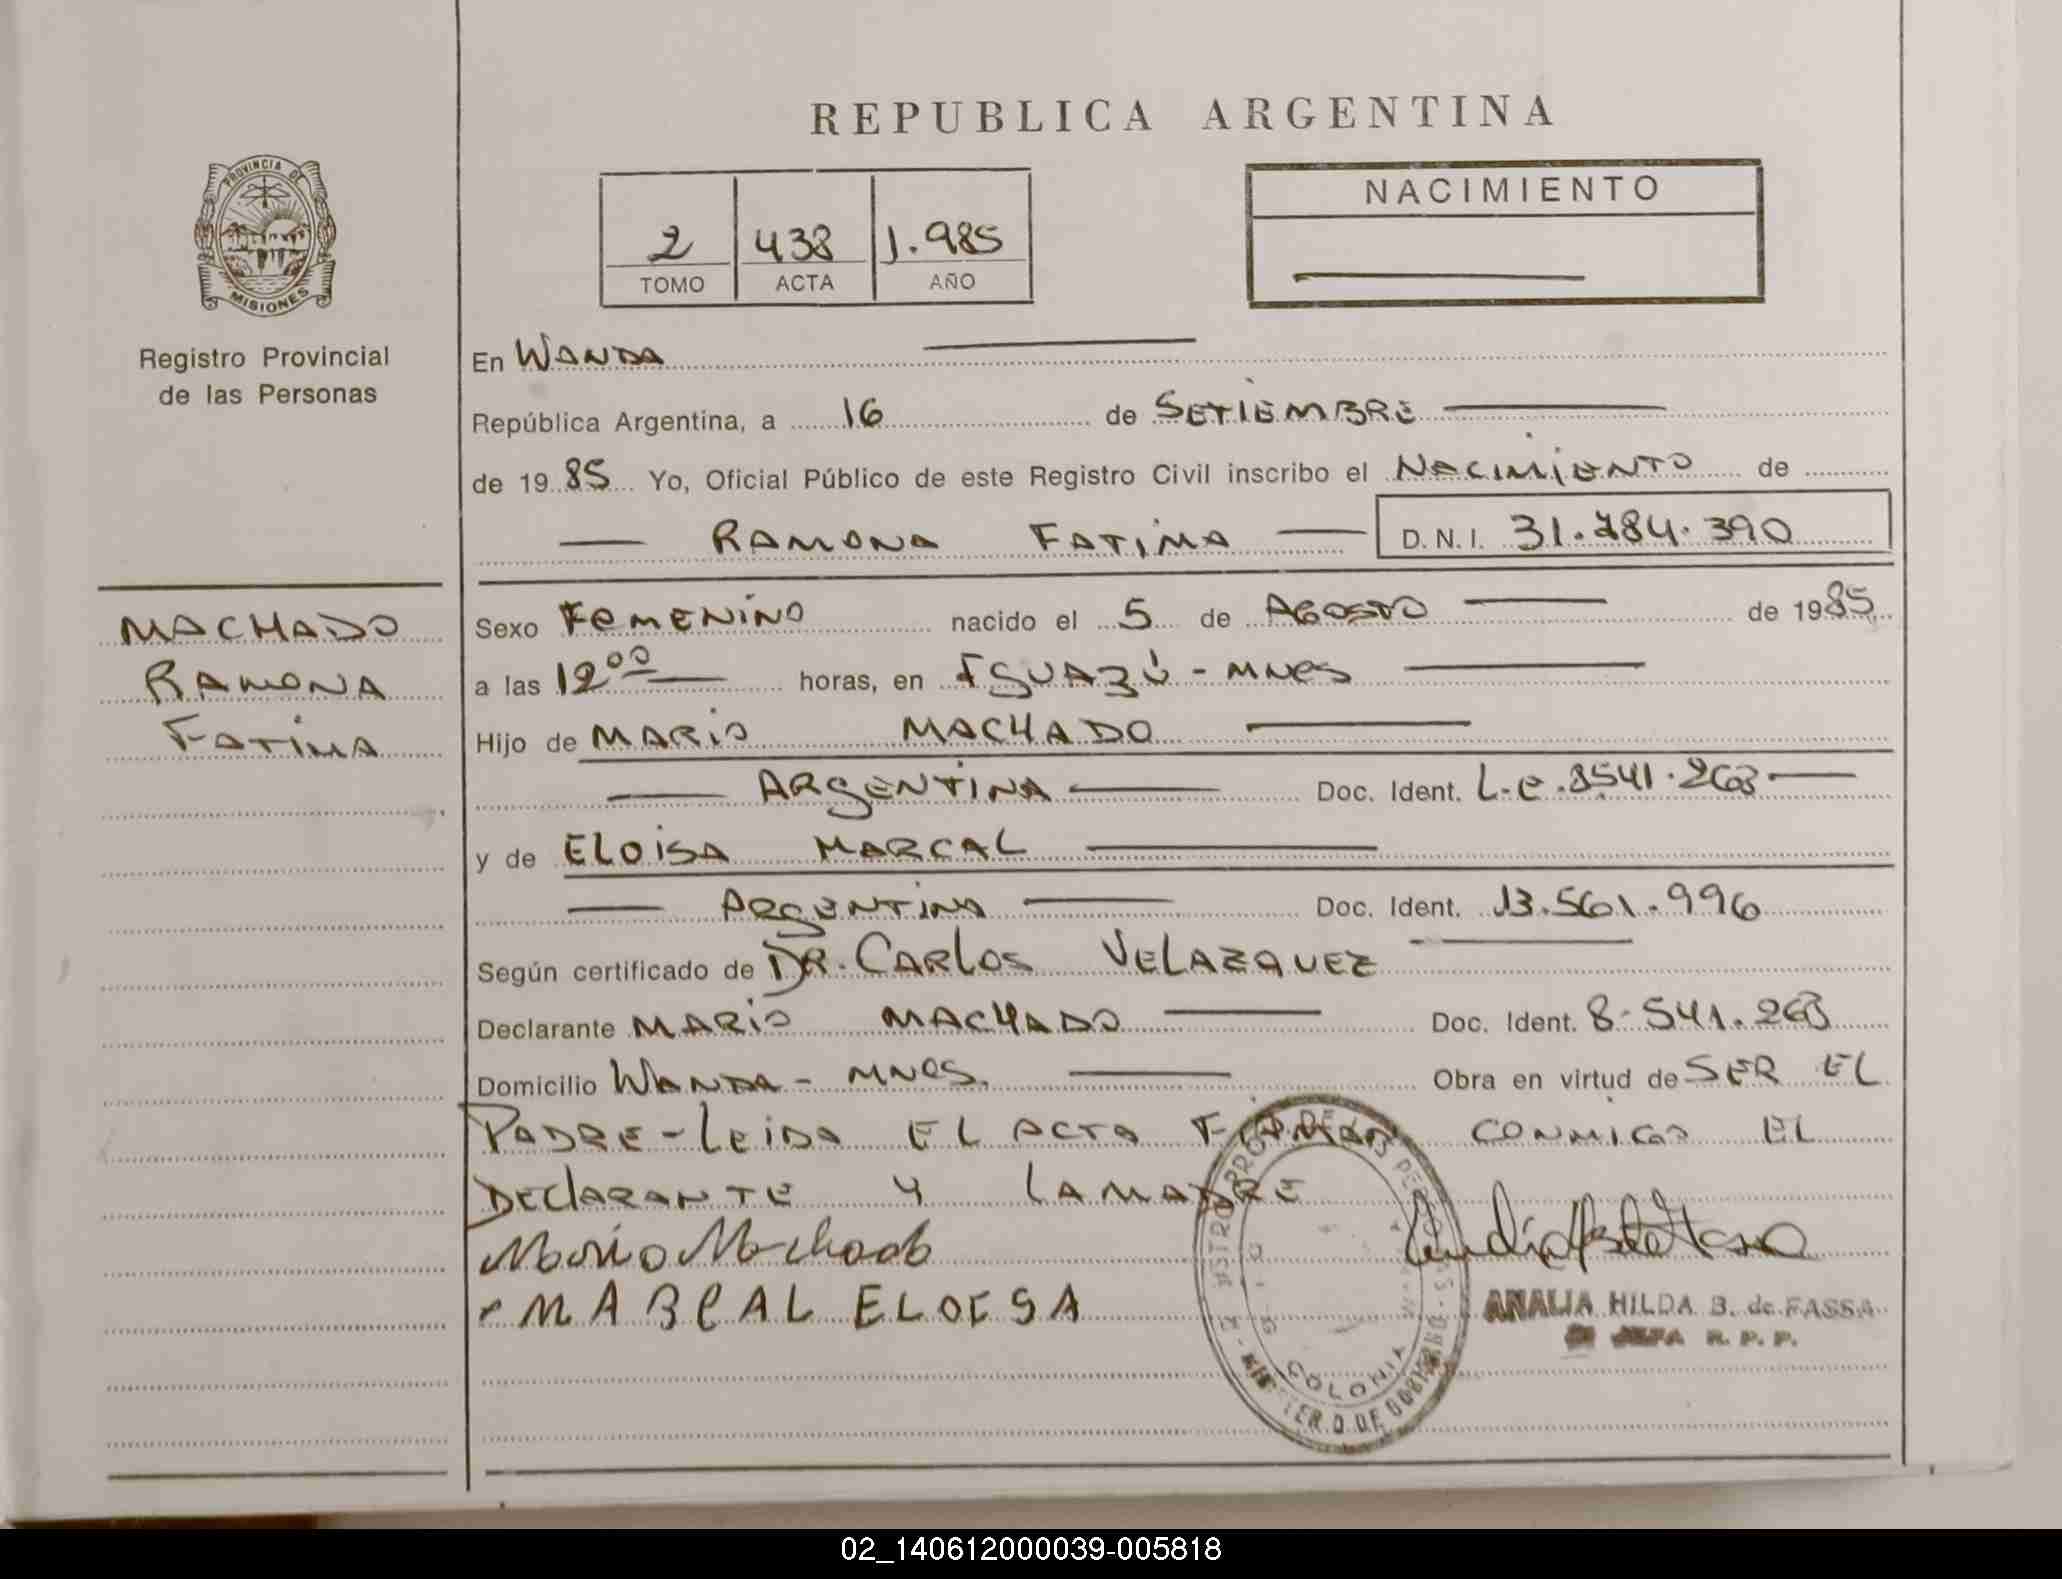 REPUBLICA ARGENTINA
PROVINCIA DE
MISIONES
Registro Provincial
de las Personas
2 438 1.985
TOMO ACTA AÑO
NACIMIENTO
En WANDA
República Argentina, a 16 de SETIEMBRE
de 1985 Yo, Oficial Público de este Registro Civil inscribo el NACIMIENTO de
RAMONA FATIMA D.N.I. 31.784.390
MACHADO
RAMONA
FATIMA
Sexo FEMENINO nacido el 5 de AGOSTO de 1985
a las 12 00 horas, en IGUAZÚ - MNES
Hijo de MARIO MACHADO
ARGENTINA Doc. Ident. L.E. 8541.263
y de ELOISA MARCAL
ARGENTINA Doc. Ident. 13.561.996
Según certificado de DR. CARLOS VELAZQUEZ
Declarante MARIO MACHADO Doc. Ident. 8.541.263
Domicilio WANDA - MNES. Obra en virtud de SER EL
PADRE - LEIDA EL ACTA FIRMAN CONMIGO EL
DECLARANTE Y LA MADRE
Mario Machado
MARCAL ELOESA
COLONIA
ANALIA HILDA B. de FASSA
JEFA R. P. P.
02_140612000039-005818